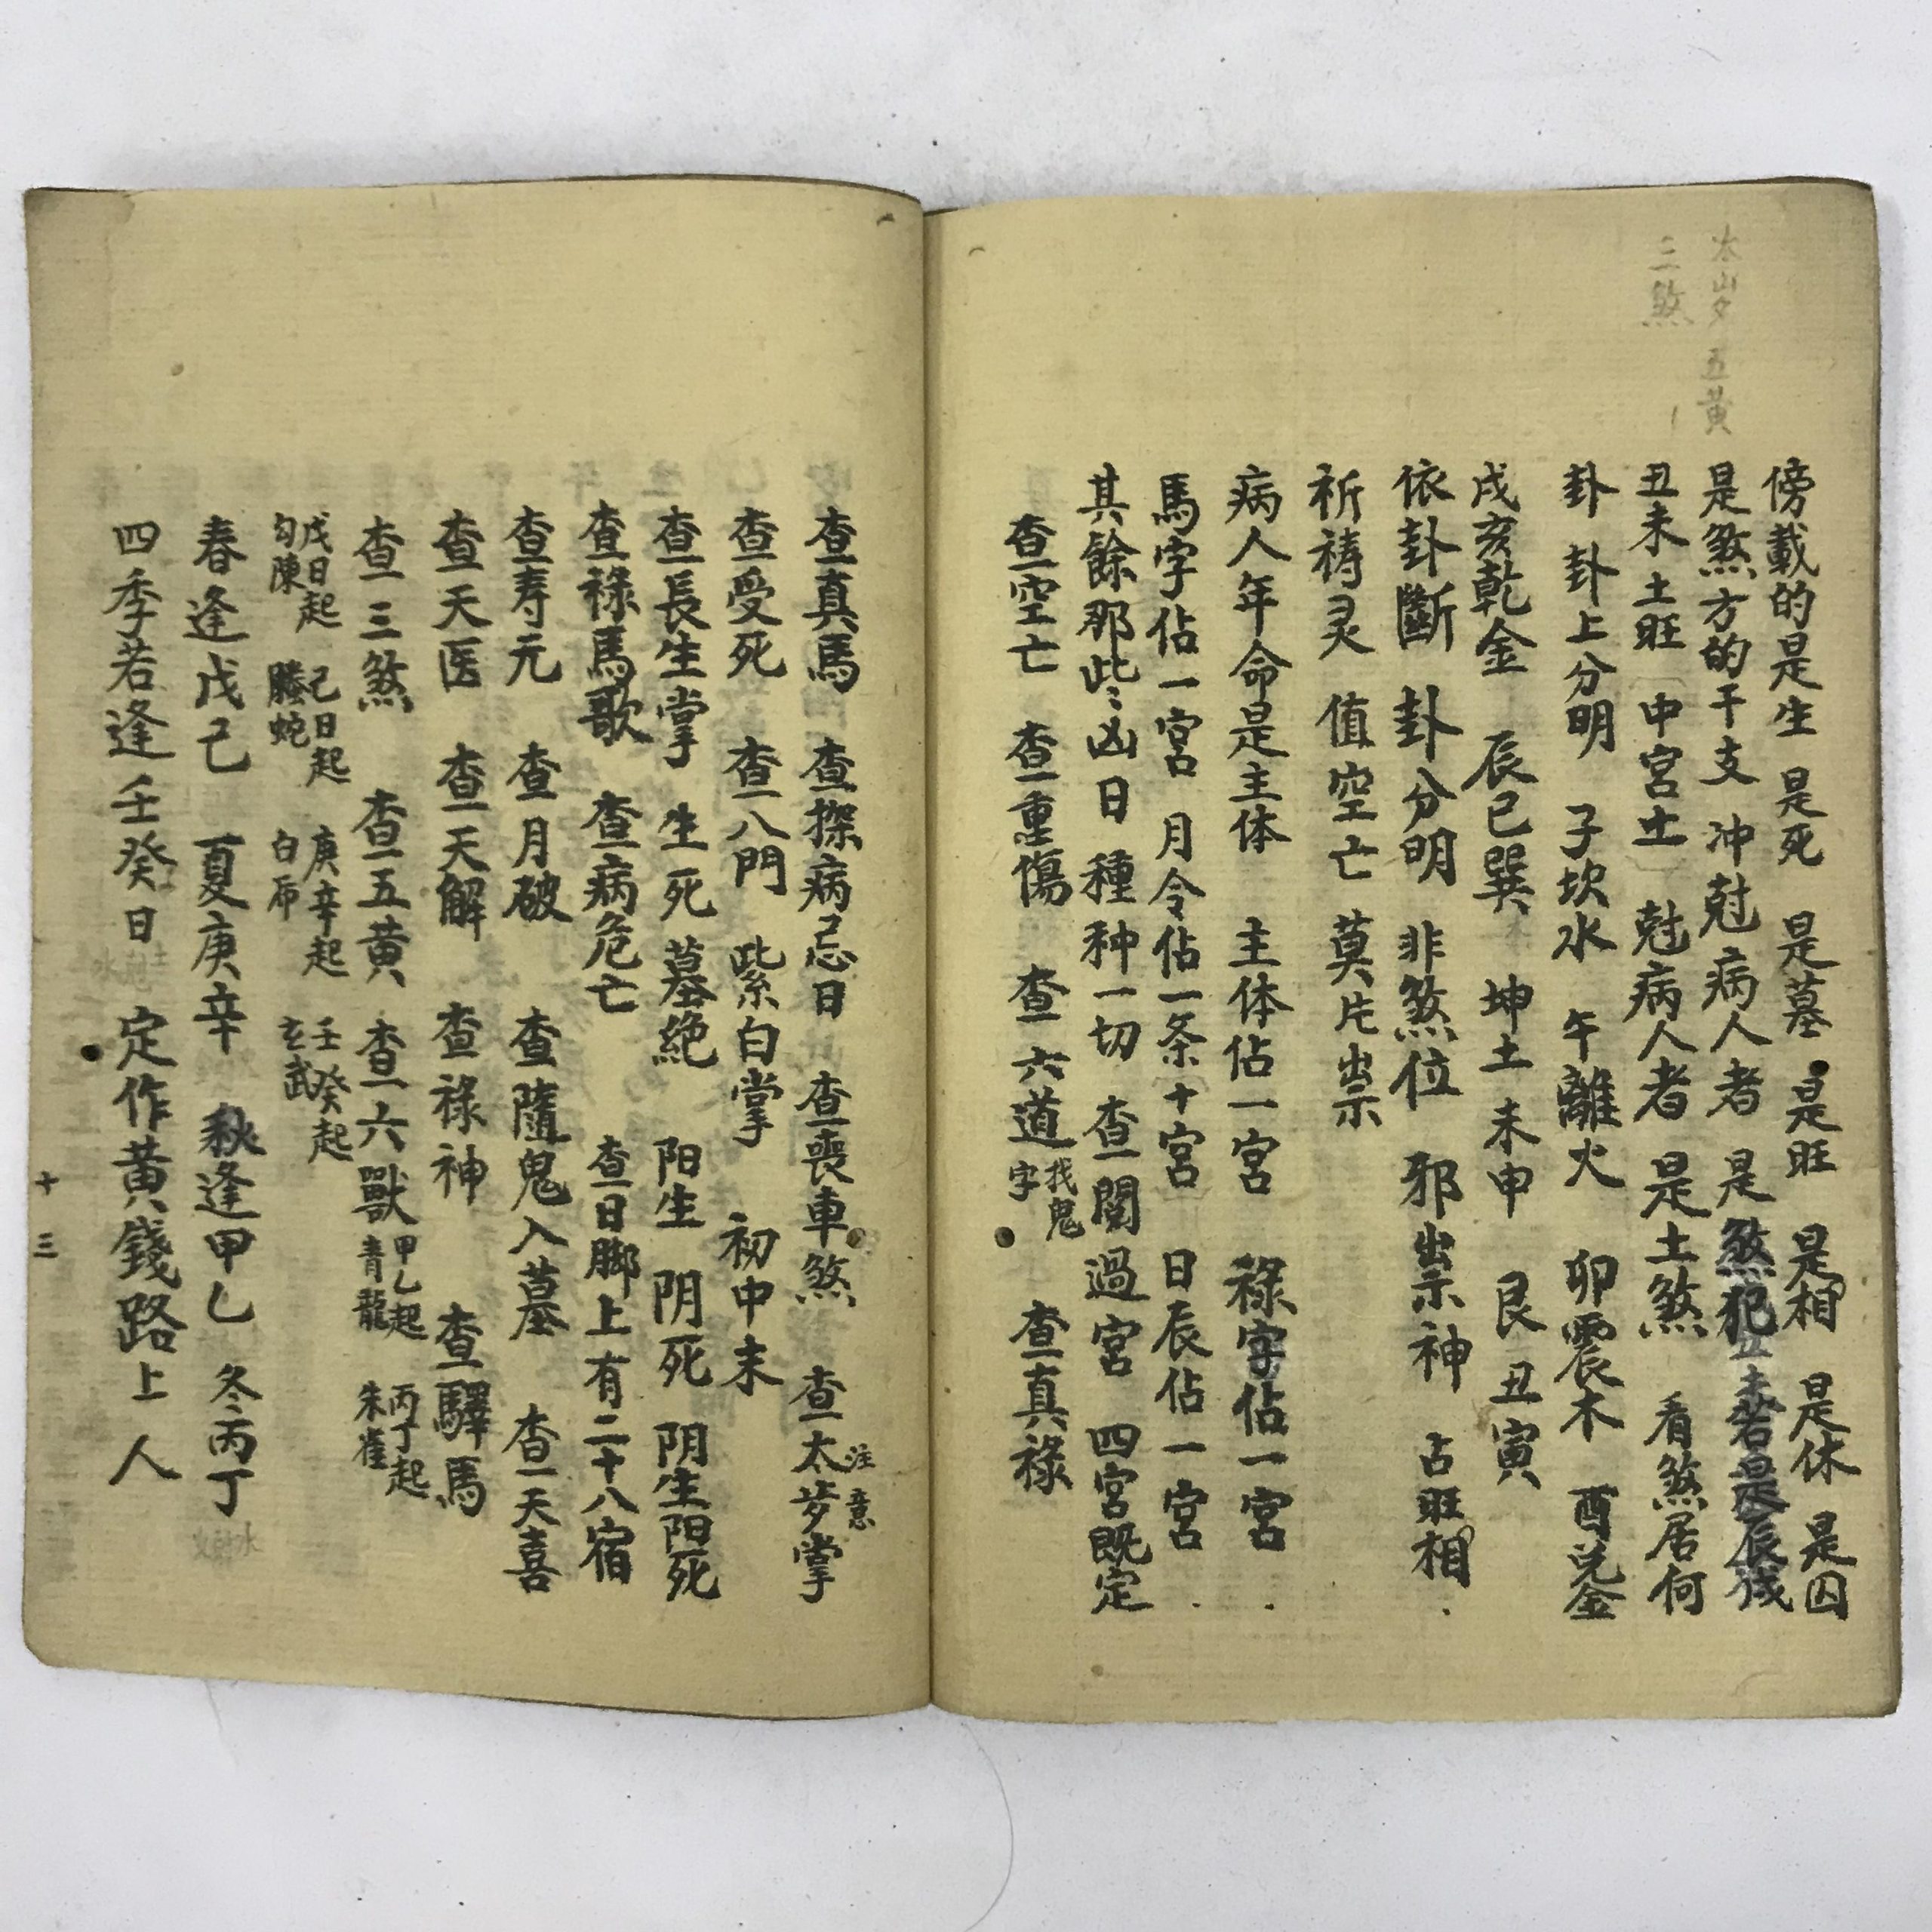 三煞
五黄
傍載的是生 是死 是墓 是旺 是相 是休 是囚
是煞方的干支 冲尅病人者 是煞犯 若是辰戌
丑未土旺 中宮土 尅病人者 是土煞 看煞居何
卦 卦上分明 子坎水 午離火 卯震木 酉兑金
戌亥乾金 辰巳巽木 坤土未申 艮丑寅
依卦斷 卦分明 非煞位 邪祟神 占旺相
祈祷灵 值空亡 莫片祟
病人年命是主体 主体佔一宮 祿字佔一宮
馬字佔一宮 月令佔一条十宮 日辰佔一宮
其餘那些凶日 種种一切 查關過宮 四宮既定
查空亡 查重傷 查六道找鬼字 查真祿
查真馬 查探病忌日 查喪車煞 查太岁掌 注意
查受死 查八門 紫白掌 初中末
查長生掌 生死墓絶 阳生阴死 阴生阳死
查祿馬歌 查病危亡 查日脚上有二十八宿
查寿元 查月破 查隨鬼入墓 查天喜
查天医 查天解 查祿神 查驛馬
查三煞 查五黄 查六獸 甲乙起青龍 丙丁起朱雀
戊日起勾陳 己日起螣蛇 庚辛起白虎 壬癸起玄武
春逢戊己 夏庚辛 秋逢甲乙 冬丙丁
四季若逢壬癸日 定作黄錢路上人
十三